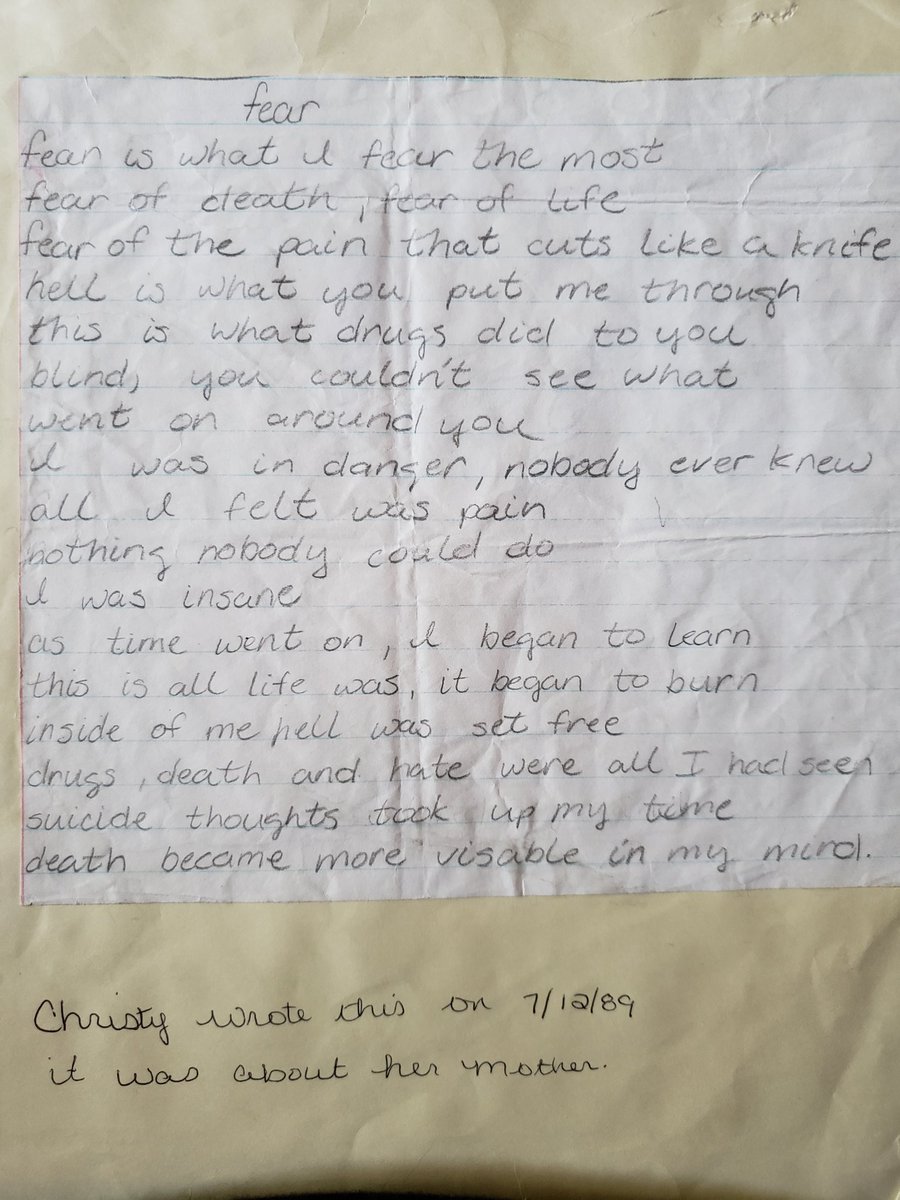 fear
fear is what I fear the most
fear of death, fear of life
fear of the pain that cuts like a knife
hell is what you put me through
this is what drugs did to you
blind, you couldn't see what
went on around you
I was in danger, nobody ever knew
all I felt was pain
nothing nobody could do
I was insane
as time went on, I began to learn
this is all life was, it began to burn
inside of me hell was set free
drugs, death and hate were all I had seen
suicide thoughts took up my time
death became more visable in my mind.
Christy wrote this on 7/12/89
it was about her mother.